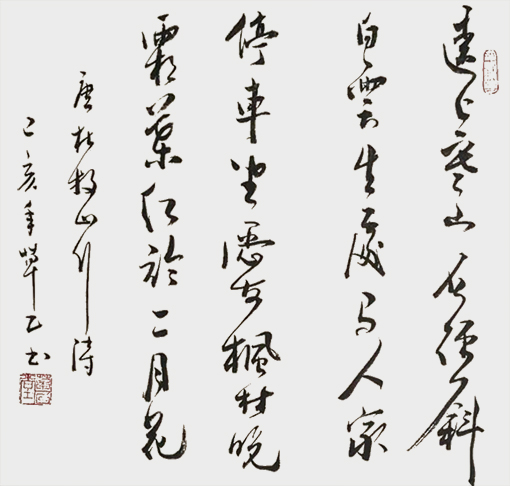 遠上寒山石徑斜
白雲生處有人家
停車坐愛楓林晚
霜葉紅於二月花
唐杜牧山行詩
己亥年 书